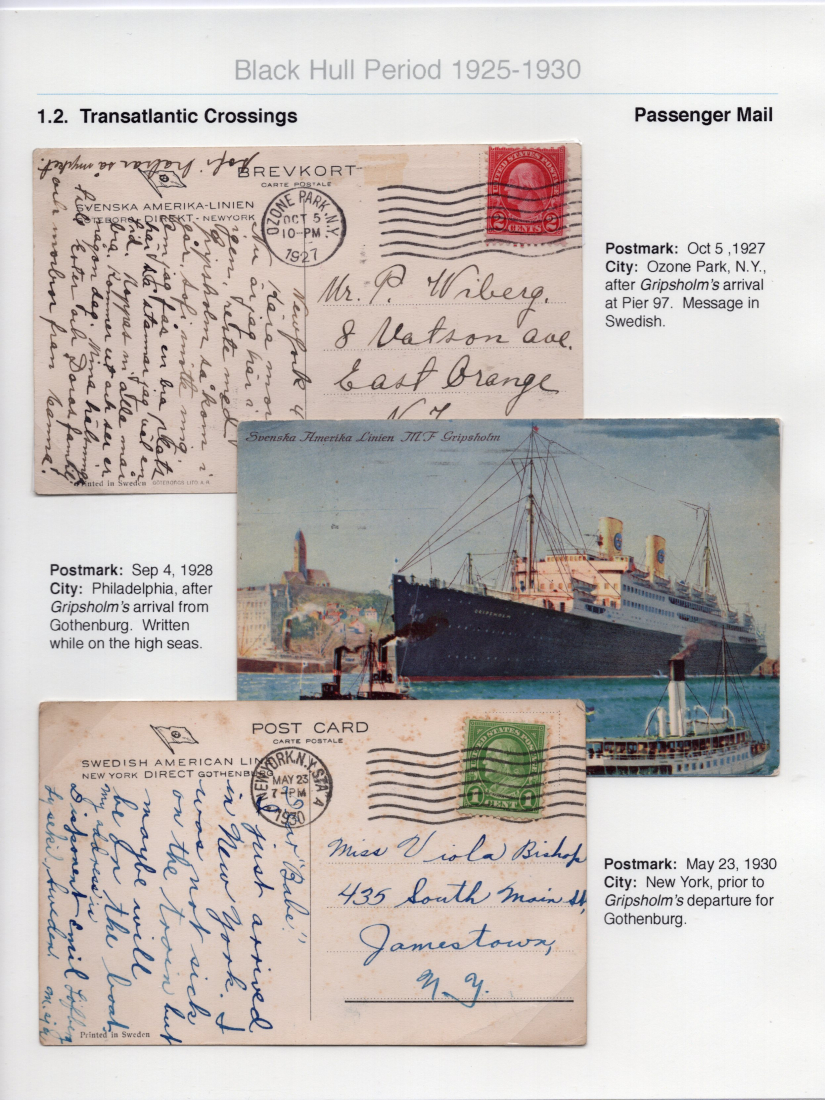 Black Hull Period 1925-1930
1.2. Transatlantic Crossings
Passenger Mail
BREVKORT
CARTE POSTALE
SVENSKA AMERIKA-LINIEN
GÖTEBORG-DIREKT-NEWYORK
OZONE PARK, N.Y.
OCT 5
10-PM
1927
UNITED STATES POSTAGE
2 CENTS 2
Mr. P. Wiberg.
8 Watson ave.
East Orange
N.J.
NewYork 4
Kära mor
Nu är jag här i
igen, reste med
Gripsholm så kom i
går, Sofi mötte mig.
och morbror från Hanna!
Printed in Sweden GÖTEBORGS LITO. A.B.
Postmark: Oct 5 ,1927
City: Ozone Park, N.Y.,
after Gripsholm's arrival
at Pier 97. Message in
Swedish.
Svenska Amerika Linien M/F Gripsholm
GRIPSHOLM
Postmark: Sep 4, 1928
City: Philadelphia, after
Gripsholm's arrival from
Gothenburg. Written
while on the high seas.
POST CARD
CARTE POSTALE
SWEDISH AMERICAN LINE
NEW YORK DIRECT GOTHENBURG
NEW YORK, N.Y. STA
MAY 23
7-PM
1930
4
UNITED STATES POSTAGE
1 CENT 1
Dear "Babe"
I just arrived
in New York. I
was not sick
on the train but
maybe will
be on the boat
my address is
Lysekil, Sweden.
Miss Viola Bishop
435 South Main St,
Jamestown,
N.Y.
Printed in Sweden
Postmark: May 23, 1930
City: New York, prior to
Gripsholm's departure for
Gothenburg.